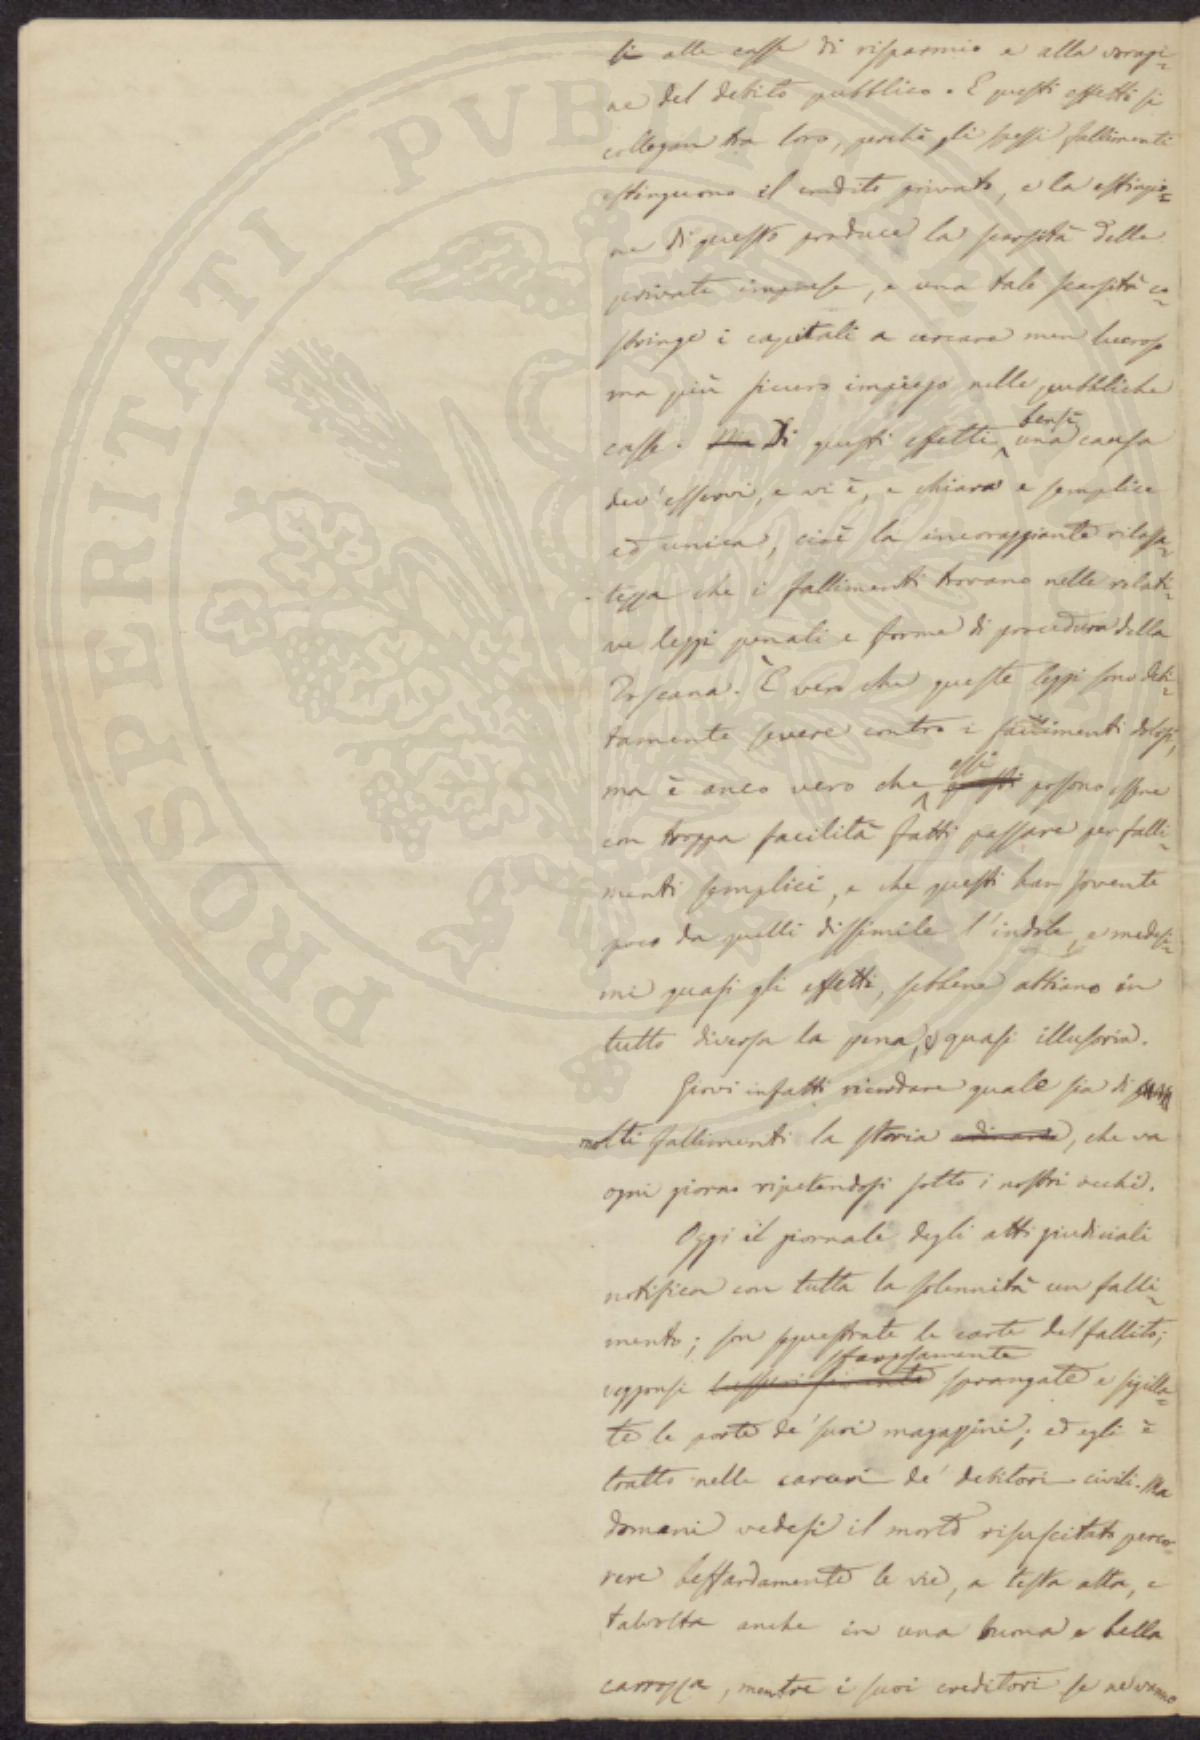 li alle casse di risparmio e alla voragi=
ne del debito pubblico. E questi effetti si
collegan tra loro, perchè gli spessi fallimenti
estinguono il credito privato, e la estinzio=
ne di questo produce la scarsità delle
private imprese, e una tale scarsità co=
stringe i capitali a cercare men lucroso
ma più sicuro impiego nelle pubbliche
casse. Ma Di questi effetti bensì una causa
dev'esservi, e vi è, e chiara e semplice
ed unica, cioè la incoraggiante rilassa=
tezza che i fallimenti trovano nelle relati=
ve leggi penali e forme di procedura della
Toscana. È vero che queste leggi sono debi=
tamente severe contro i fallimenti dolosi,
ma è anco vero che essi questi possono essere
con troppa facilità fatti passare per falli=
menti semplici, e che questi han sovente
poco da quelli dissimile l'indole, e medesi=
mi quasi gli effetti, sebbene abbiano in
tutto diversa la pena, e quasi illusoria.
Giovi infatti ricordare quale sia di
molti fallimenti la storia ordinaria, che va
ogni giorno ripetendosi sotto i nostri occhi.
Oggi il giornale degli atti giudiciali
notifica con tutta la solennità un falli=
mento; son sequestrate le carte del fallito;
veggonsi sfarzosamente sprangate e sigilla=
te le porte de' suoi magazzini; ed egli è
tratto nelle carceri de' debitori civili. Ma
domani vedesi il morto risuscitato percor=
rere beffardamente le vie, a testa alta, e
talvolta anche in una buona e bella
carrozza, mentre i suoi creditori se ne vanno
PROSPERITATI PUBLICAE